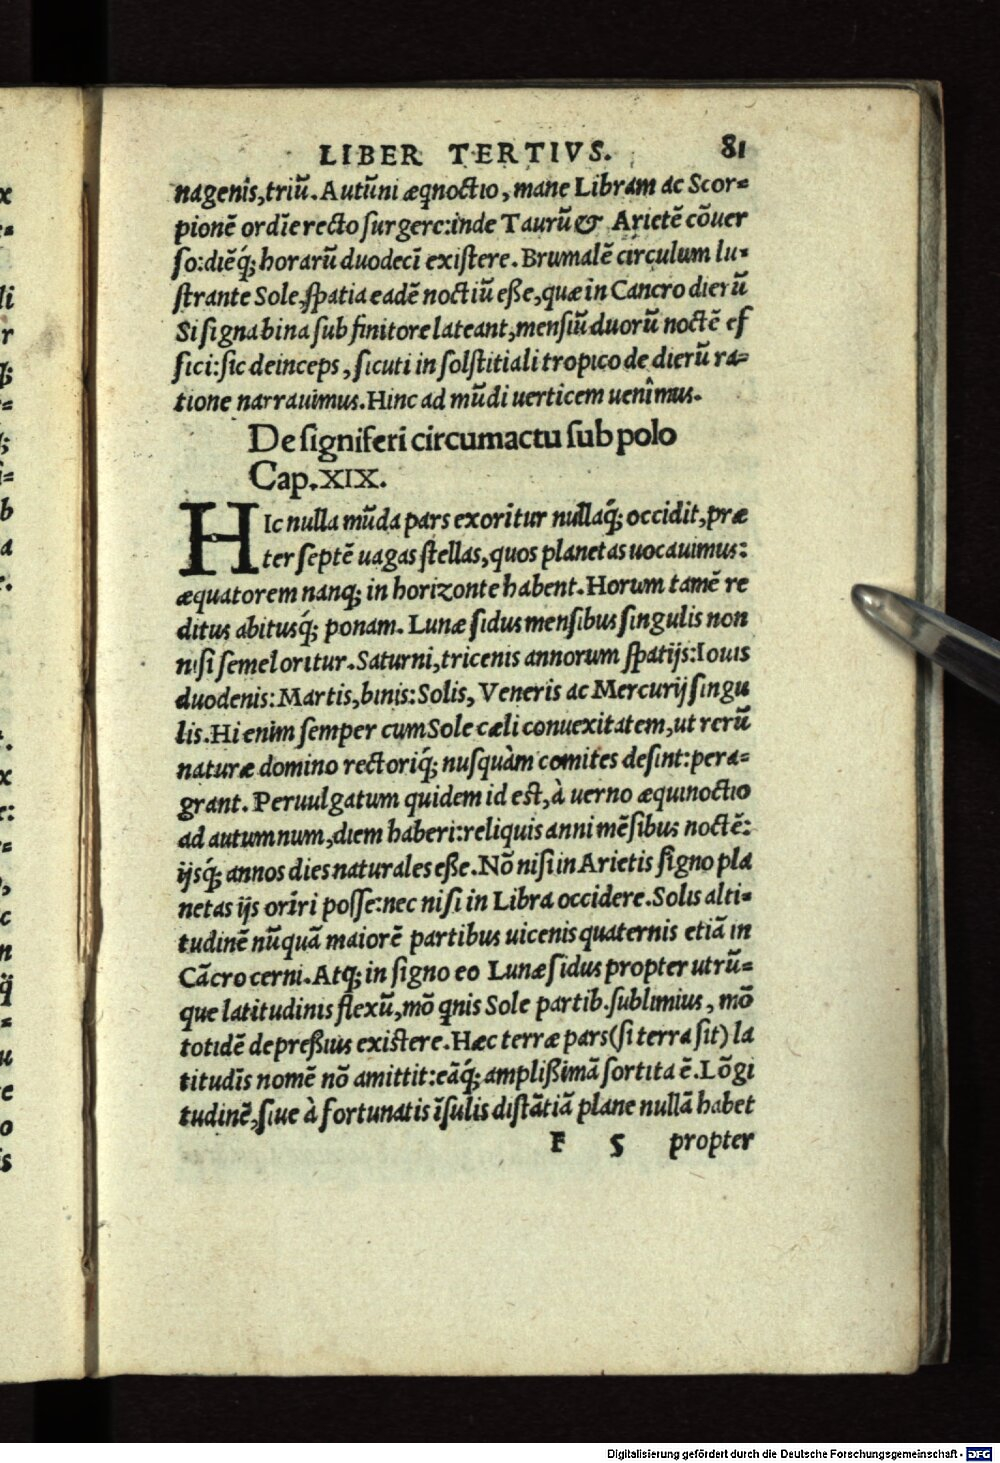 LIBER TERTIVS. 81
nagenis,triũ. Autũni æqnoctio, mane Libram ac Scor-
pionẽ ordĩe recto surgere:inde Taurũ & Arietẽ cõuer
so:diẽq́; horarũ duodecĩ existere. Brumalẽ circulum lu-
strante Sole,spatia eadẽ noctiũ eße,quæ in Cancro dierũ
Si signa bina sub finitore lateant,mensiũ duorũ noctẽ ef
fici:sic deinceps, sicuti in solstitiali tropico de dierũ ra-
tione narrauimus. Hinc ad mũdi uerticem uenimus.
De signiferi circumactu sub polo
Cap. XIX.
HIc nulla mũda pars exoritur nullaq́; occidit, præ
ter septẽ uagas stellas, quos planetas uocauimus:
æquatorem nanq; in horizonte habent. Horum tamẽ re
ditus abitusq́; ponam. Lunæ sidus mensibus singulis non
nisi semel oritur. Saturni, tricenis annorum spatijs: Iouis
duodenis: Martis, binis: Solis, Veneris ac Mercurij singu
lis. Hi enim semper cum Sole cæli conuexitatem, ut rerũ
naturæ domino rectoriq́; nusquàm comites desint: pera-
grant. Peruulgatum quidem id est, à uerno æquinoctio
ad autumnum, diem haberi: reliquis anni mẽsibus noctẽ:
ijsq́; annos dies naturales eße. Nõ nisi in Arietis signo pla
netas ijs oriri posse: nec nisi in Libra occidere. Solis alti-
tudinẽ nũquã maiorẽ partibus uicenis quaternis etiã in
Cãcro cerni. Atq; in signo eo Lunæ sidus propter utrũ-
que latitudinis flexũ, mõ qnis Sole partib. sublimius, mõ
totidẽ depreßius existere. Hæc terræ pars (si terra sit) la
titudĩs nomẽ nõ amittit: eãq́; amplißimã sortita ẽ. Lõgi
tudinẽ, siue à fortunatis ĩsulis distãtiã plane nullã habet
F 5 propter
x
li
r
q́;
b
a
x
c
n
q̃
u
e
o
is
Digitalisierung gefördert durch die Deutsche Forschungsgemeinschaft - DFG